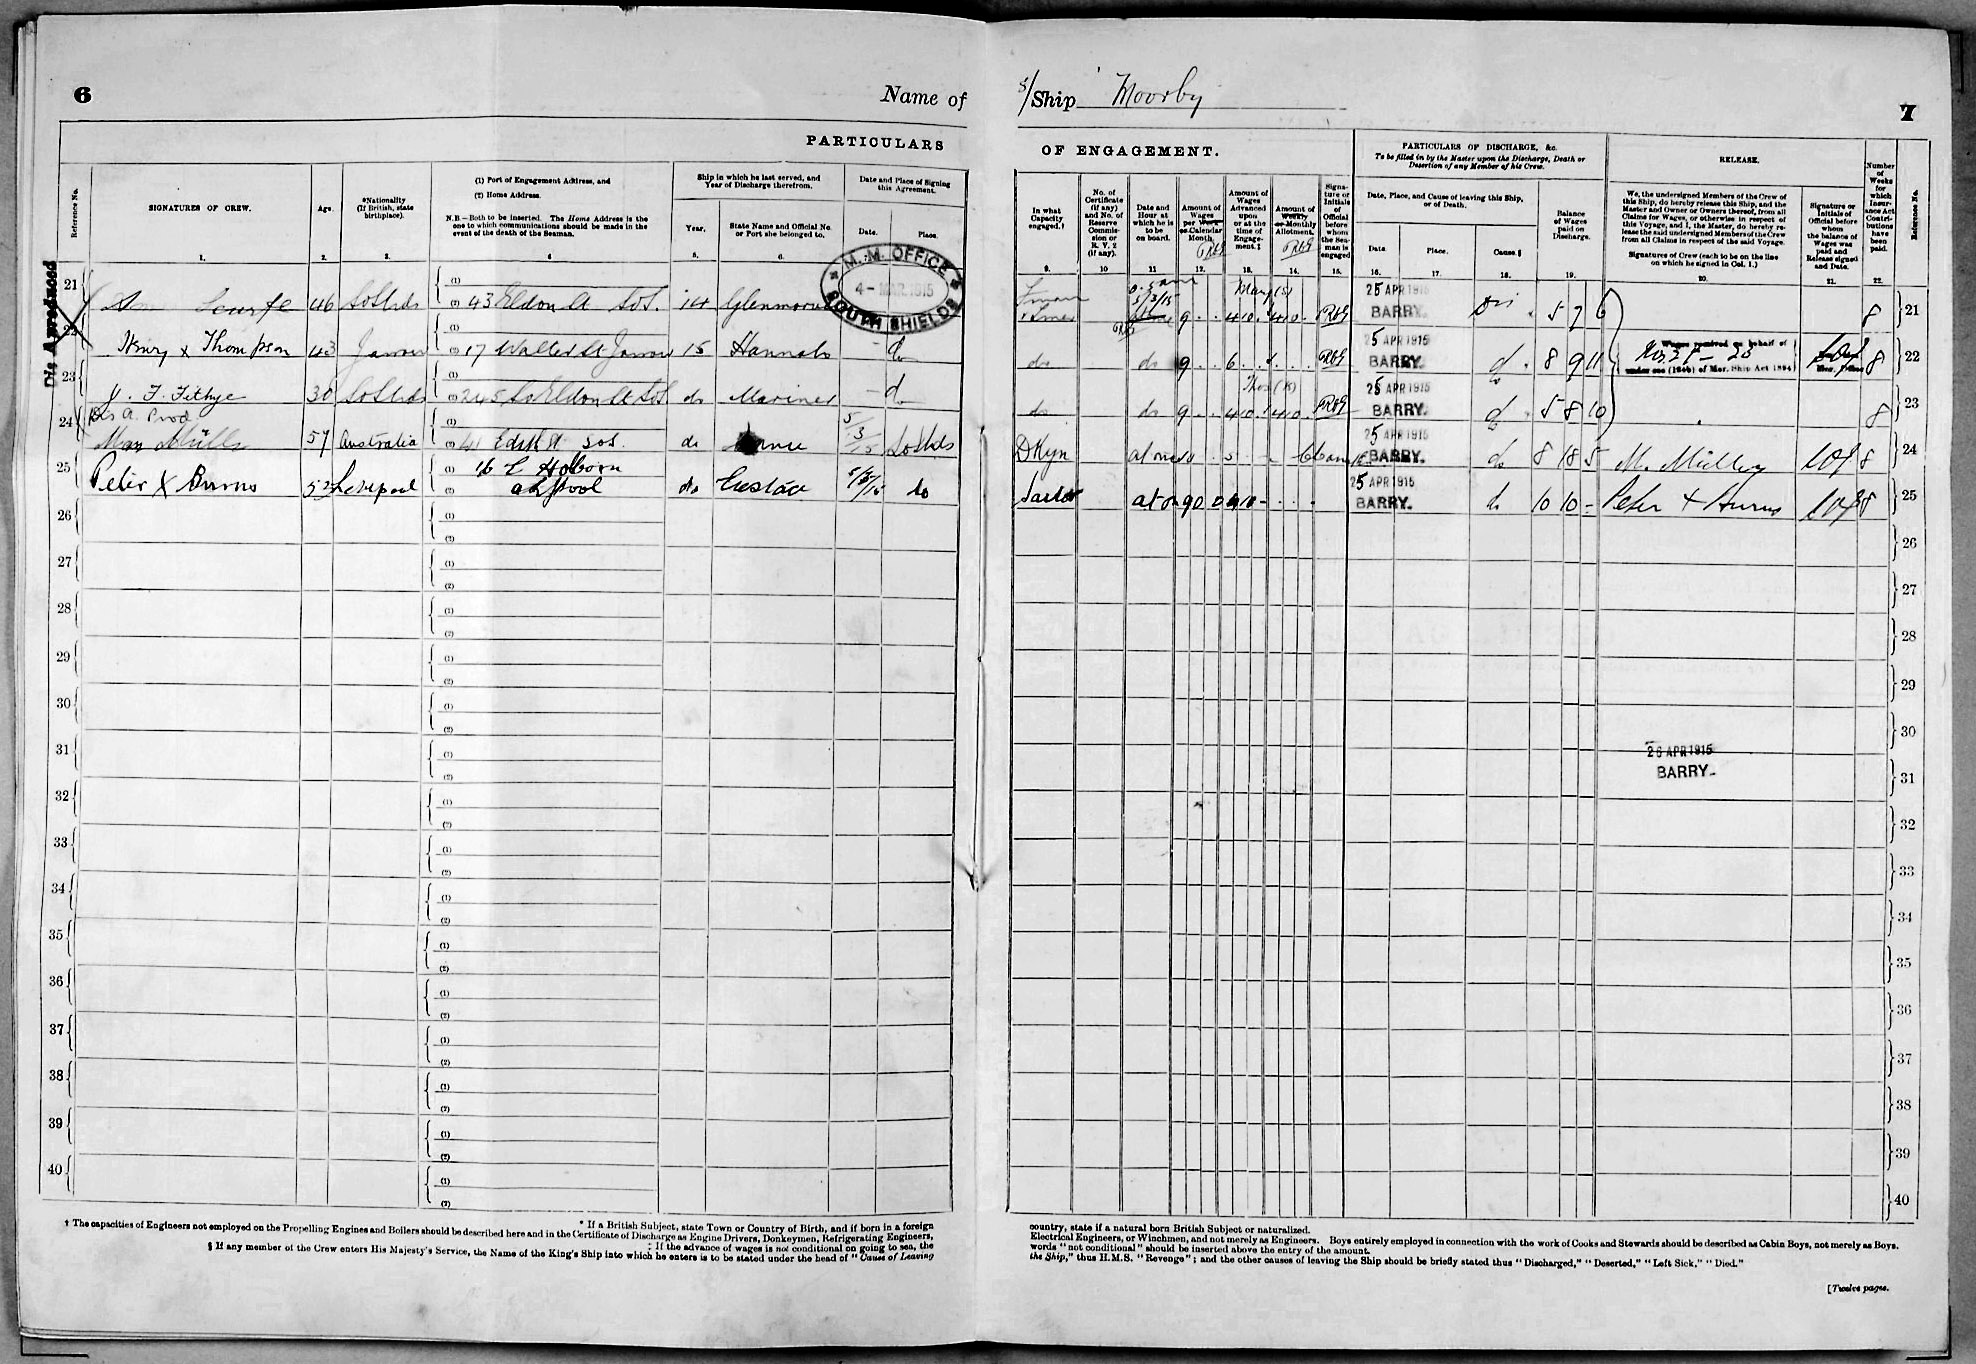 6
Name of
PARTICULARS
Reference No.
SIGNATURES OF CREW.
Age.
*Nationality
(If British, state
birthplace).
(1) Port of Engagement Address, and
(2) Home Address.
N.B.—Both to be inserted. The Home Address is the
one to which communications should be made in the
event of the death of the Seaman.
Ship in which he last served, and
Year of Discharge therefrom.
Year.
State Name and Official No.
or Port she belonged to.
Date and Place of Signing
this Agreement.
Date.
Place.
1.
2.
3.
4
5.
6.
M. M. OFFICE
4- MAR 1915
SOUTH SHIELDS
Dis A produced
21
46 So Shds
43 Eldon St So S.
14
22
Henry x Thompson 43 Jarrow
17 Walter St Jarrow 15 Hannah
do
23
30 So Shds
245 So Eldon St So S do Mariner
— do
24
57 Australia
41 Edith St So S. do
5/3/15 So Shds
25
Peter X Burns 52 Liverpool
16 E Holborn
do Eustace 5/3/15 do
26
27
28
29
30
31
32
33
34
35
36
37
38
39
40
* If a British Subject, state Town or Country of Birth, and if born in a foreign
† The capacities of Engineers not employed on the Propelling Engines and Boilers should be described here and in the Certificate of Discharge as Engine Drivers, Donkeymen, Refrigerating Engineers,
‡ If the advance of wages is not conditional on going to sea, the
§ If any member of the Crew enters His Majesty's Service, the Name of the King's Ship into which he enters is to be stated under the head of "Cause of Leaving
S/Ship Moorby
7
OF ENGAGEMENT.
In what
Capacity
engaged.†
No. of
Certificate
(if any)
and No. of
Reserve
Commis-
sion or
R. V. 2
(if any).
Date and
Hour at
which he is
to be
on board.
Amount of
Wages
per Week
or Calendar
Month.
Amount of
Wages
Advanced
upon
or at the
time of
Engage-
ment.‡
Amount of
Weekly
or Monthly
Allotment.
Signa-
ture or
Initials
of
Official
before
whom
the Sea-
man is
engaged
PARTICULARS OF DISCHARGE, &c.
To be filled in by the Master upon the Discharge, Death or
Desertion of any Member of his Crew.
Date, Place, and Cause of leaving this Ship,
or of Death.
Date.
Place.
Cause.§
Balance
of Wages
paid on
Discharge.
RELEASE.
We, the undersigned Members of the Crew of
this Ship, do hereby release this Ship, and the
Master and Owner or Owners thereof, from all
Claims for Wages, or otherwise in respect of
this Voyage, and I, the Master, do hereby re-
lease the said undersigned Members of the Crew
from all Claims in respect of the said Voyage.
Signatures of Crew (each to be on the line
on which he signed in Col. 1.)
Signature or
Initials of
Official before
whom
the balance of
Wages was
paid and
Release signed
and Date.
Number
of
Weeks
for
which
Insur-
ance Act
Contri-
butions
have
been
paid.
Reference No.
9.
10
11
12.
13.
14.
15.
16.
17.
18.
19.
20.
21.
22.
25 APR 1915
BARRY.
Dis 5 7 6
8
21
do do 9 6
25 APR 1915
BARRY.
do 8 9 11
Wages received on behalf of
Nos. 21 – 23
under sec (1866) of Mer. Ship Act 1894
8
22
do do 9 4 10 4 10
25 APR 1915
BARRY.
do 5 8 10
8
23
25 APR 1915
BARRY.
do 8 18 5
8
24
25 APR 1915
BARRY.
do 10 10 -
Peter + Burns
8
25
26
27
28
29
30
26 APR 1915
BARRY.
31
32
33
34
35
36
37
38
39
40
country, state if a natural born British Subject or naturalized.
Electrical Engineers, or Winchmen, and not merely as Engineers. Boys entirely employed in connection with the work of Cooks and Stewards should be described as Cabin Boys, not merely as Boys.
words "not conditional" should be inserted above the entry of the amount.
the Ship," thus H.M.S. "Revenge"; and the other causes of leaving the Ship should be briefly stated thus "Discharged," "Deserted," "Left Sick," "Died."
[Twelve pages.